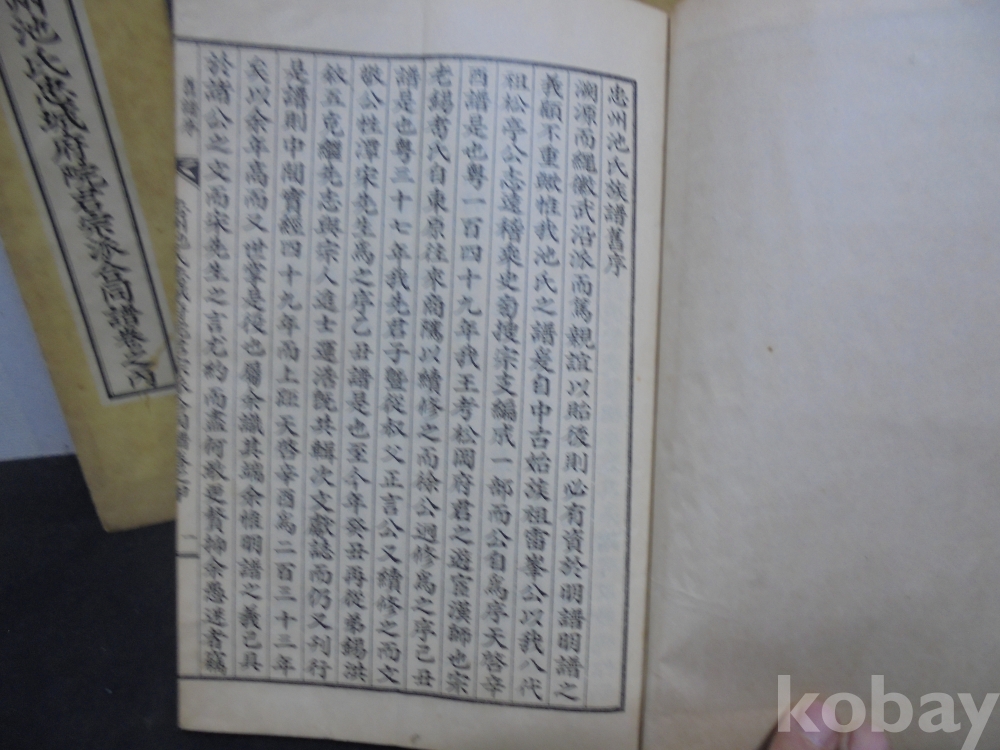 忠州池氏族譜舊序
溯源而繩徽武沿派而篤親誼以貽後則必有資於明譜明譜之
義顧不重歟惟我池氏之譜是自中古始族祖雷峯公以我八代
祖松亭公志遠稽乘史蒐宗支編成一部而公自爲序天啓辛
酉譜是也粤一百四十九年我王考松岡府君之遊宦漢師也宗
老錫耉氏自東原往來商隲以續修之而徐公迥修爲之序己丑
譜是也粤三十七年我先君子曁從叔父正言公又續修之而文
敬公性潭宋先生爲之序乙丑譜是也至今年癸丑再從弟錫洪
敍五克繼先志與宗人進士運浩旣共輯次文獻誌而仍又刊行
是譜則中間實經四十九年而上距天啓辛酉爲二百三十三年
矣以余年高而又世掌是役也屬余識其端余惟明譜之義已具
於諸公之文而宋先生之言尤約而盡何敢更贅抑余愚迷者竊
舊譜序
一
州池氏忠成府院君宗派合同譜卷之內
kobay